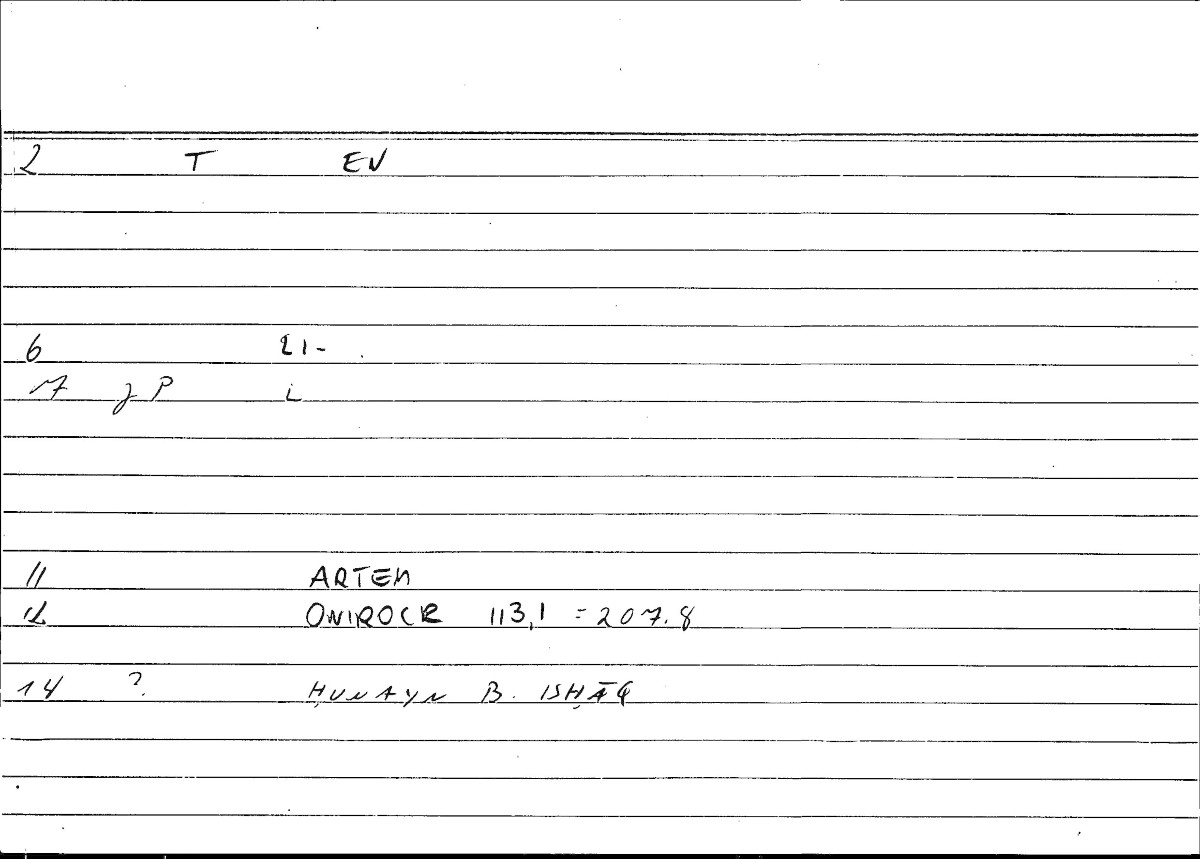 2 T EV
6 21-
7 J P L
11 ARTEM
12 ONIROCR 113,1 = 207.8
14 ? ḤUNAYN B. ISḤĀQ